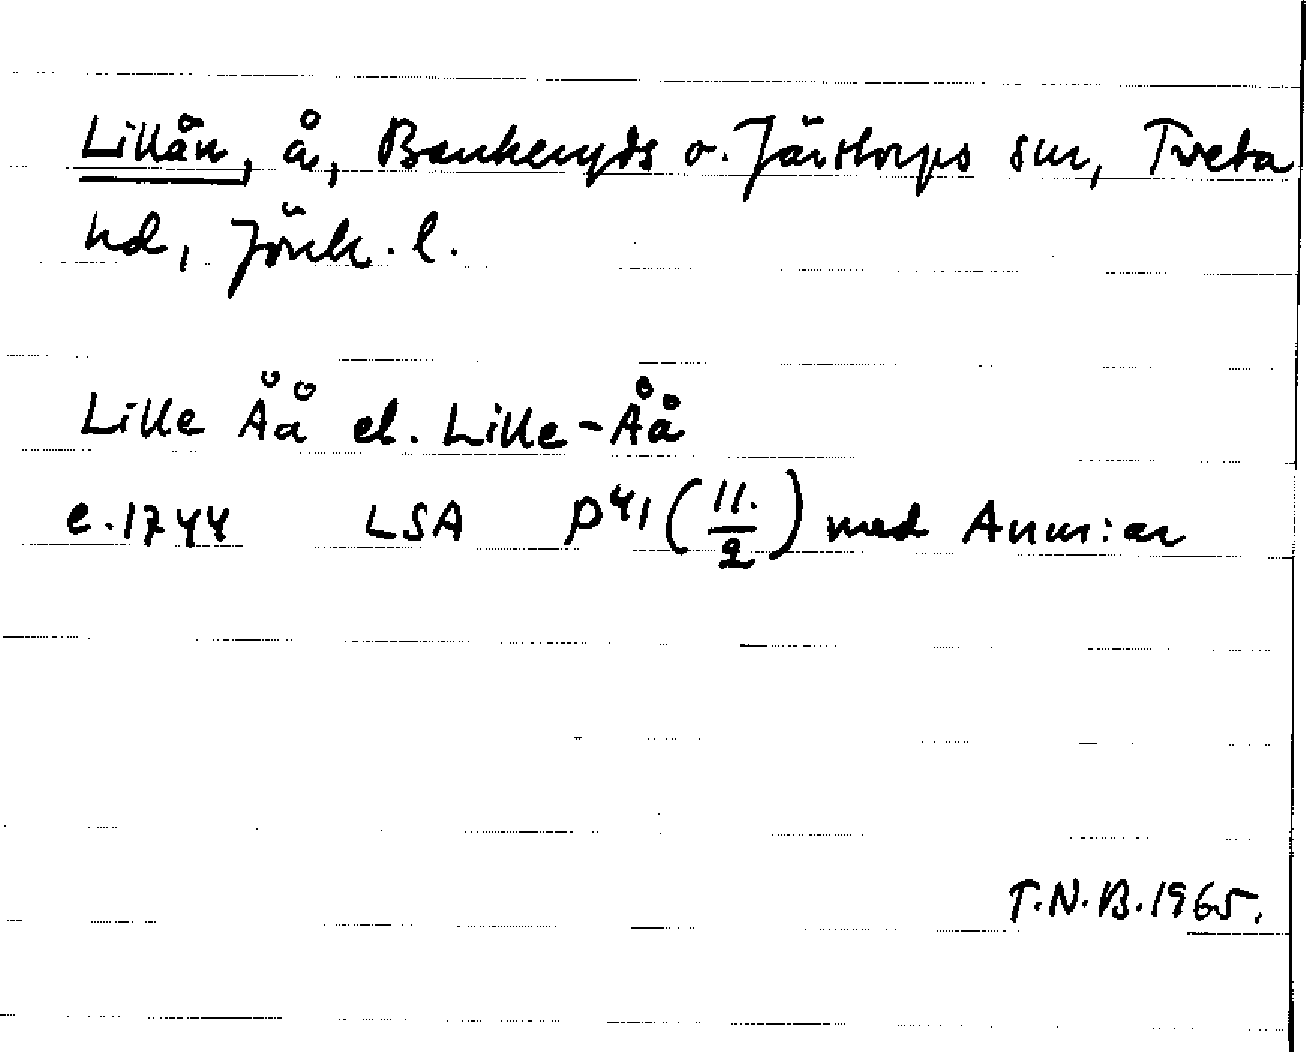 Lillån, å, Bankeryds o. Järstorps snr, Tveta
hd, Jönk. l.
Lille Åå el. Lille-Åå
e.1744 LSA P41 (11./2) med Anm:ar
T.N.B.1965.